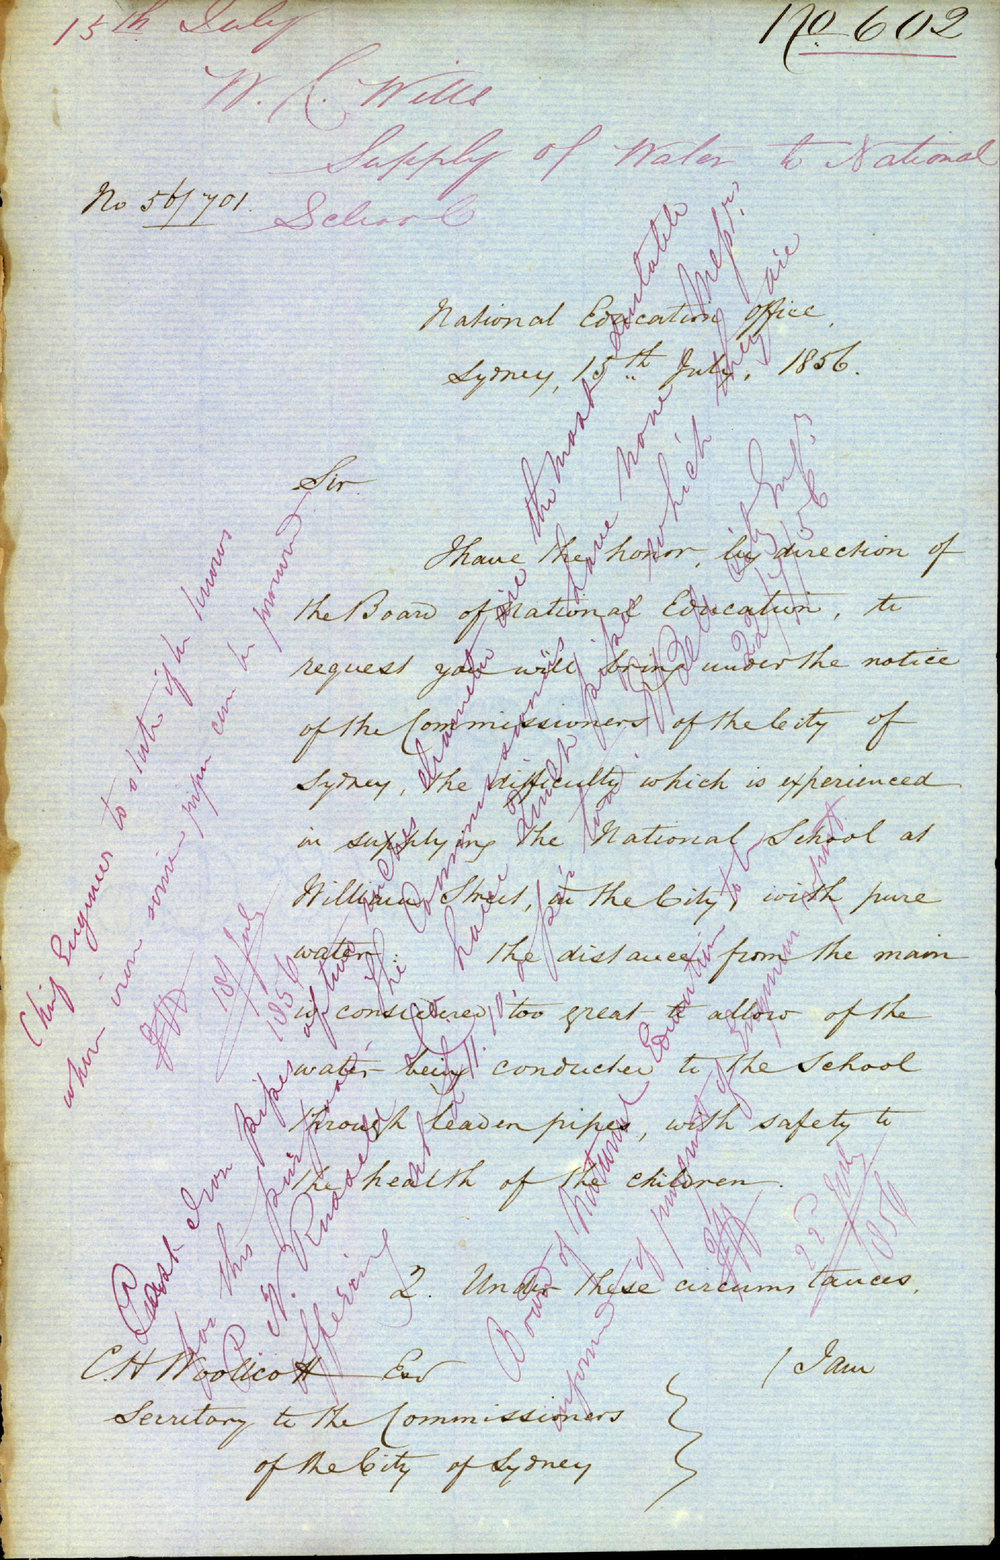 15th July
No 602
W. C. Wills
Supply of Water to National
School
No 56/701.
National Education Office,
Sydney, 15th July, 1856.
Sir
I have the honor, by direction of
the Board of National Education, to
request you will bring under the notice
of the Commissioners of the City of
Sydney, the difficulty which is experienced
in supplying the National School at
William Street, in the City, with pure
water: the distance from the main
is considered too great to allow of the
water being conducted to the School
through leaden pipes, with safety to
the health of the children.
2. Under these circumstances,
/ I am
C. H Woolcott Esq
Secretary to the Commissioners
of the City of Sydney
Chief Engineer to state if he knows
where iron some pipes can be procured
18 July
1856
Cast Iron pipes of two inches diameter are the most suitable
for this purpose. The Commissioners have none Messrs
P. N. Russell & Co have which they are
offering at £11. 10. 0 per ton.
City Engr
22/7/56
Board of National Education to be
informed
22d July
1856